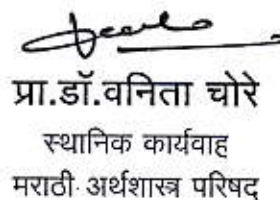 प्रा.डॉ.वनिता चोरे
स्थानिक कार्यवाह
मराठी अर्थशास्त्र परिषद